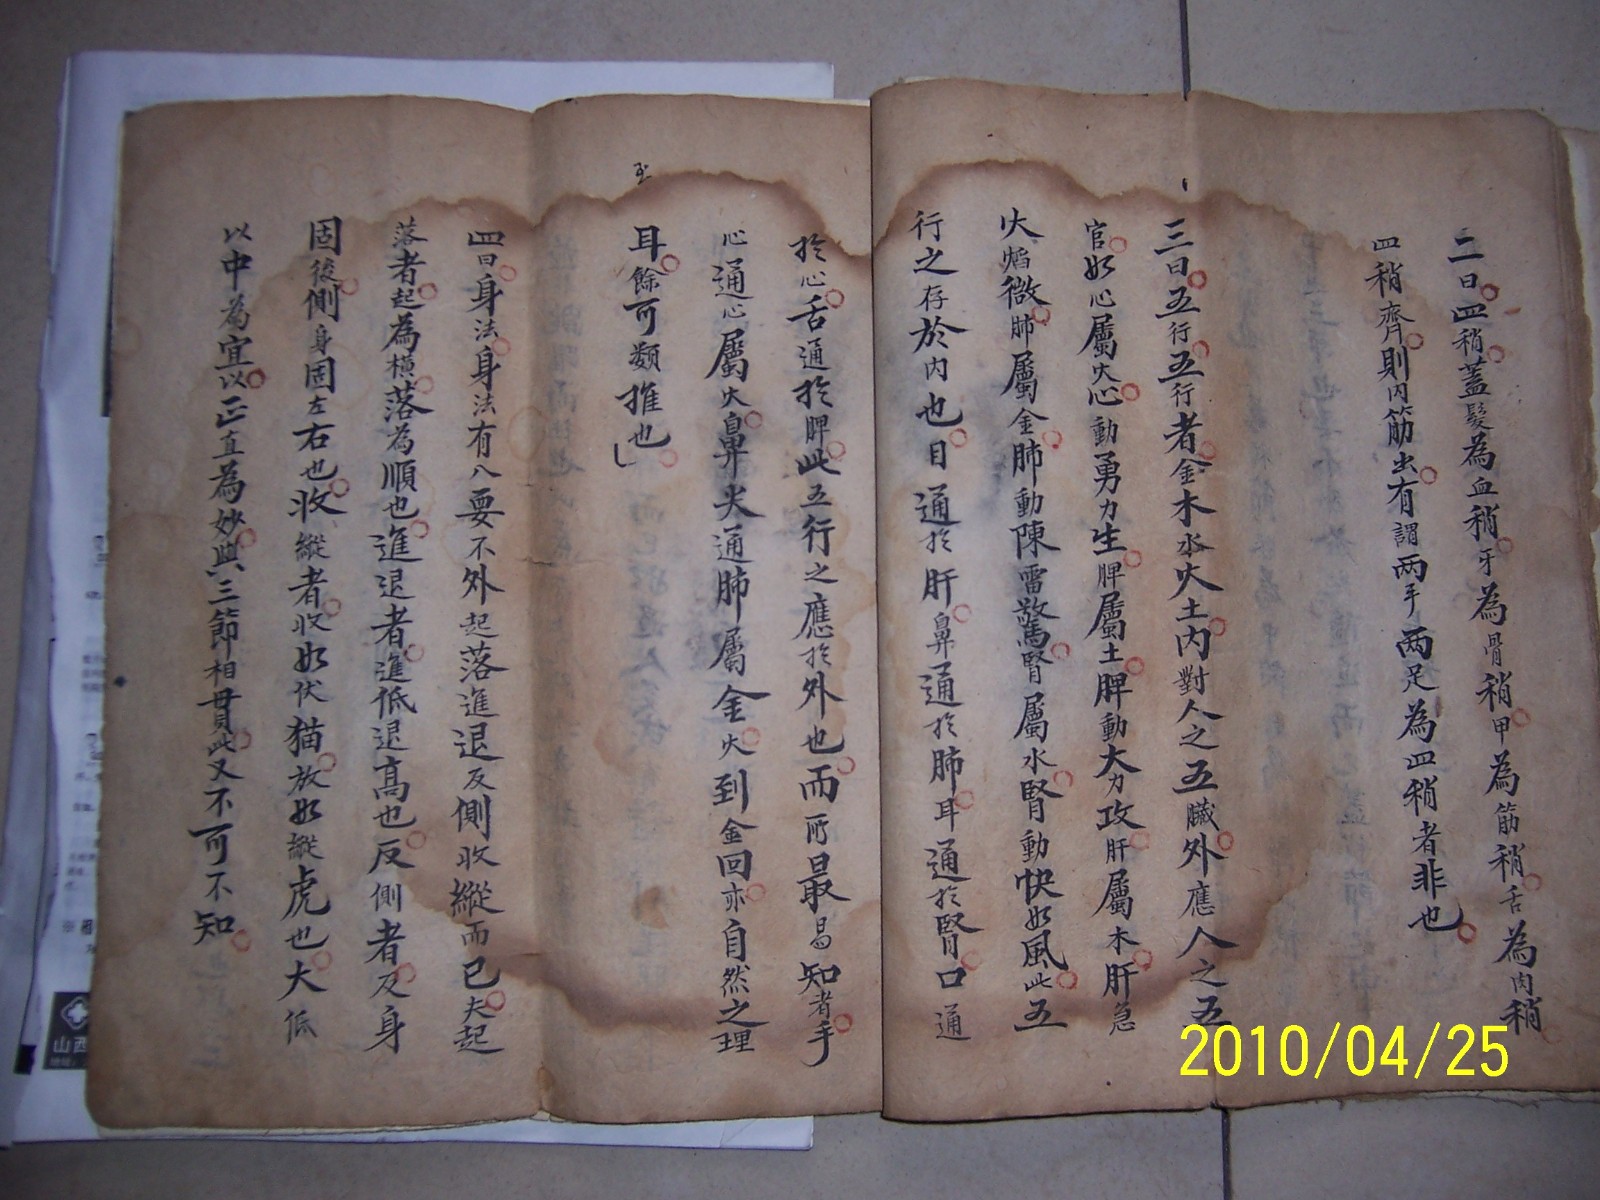 二曰四稍蓋髮為血稍牙為骨稍甲為筋稍舌為肉稍
四稍齊則内筋出有謂两手两足為四稍者非也
三曰五行五行者金木水火土内對人之五臟外應人之五
官如心屬火心動勇力生脾屬土脾動大力攻肝屬木肝急
火焰微肺屬金肺動陳雷驚腎屬水腎動快如風此五
行之存於内也目通於肝鼻通於肺耳通於腎口通
於心舌通於脾此五行之應於外也而所最易知者手
心通心屬火鼻尖通肺屬金火到金回亦自然之理
耳餘可類推也
四曰身法身法有八要不外起落進退反側收縱而已夫起
落者起為橫落為順也進退者進低退高也反側者反身
固後側身固左右也收縱者收如伏猫放如縱虎也大低
以中為宜以正直為妙與三節相貫此又不可不知
2010/04/25
山西